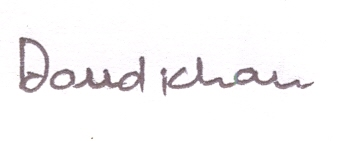 Daud khan